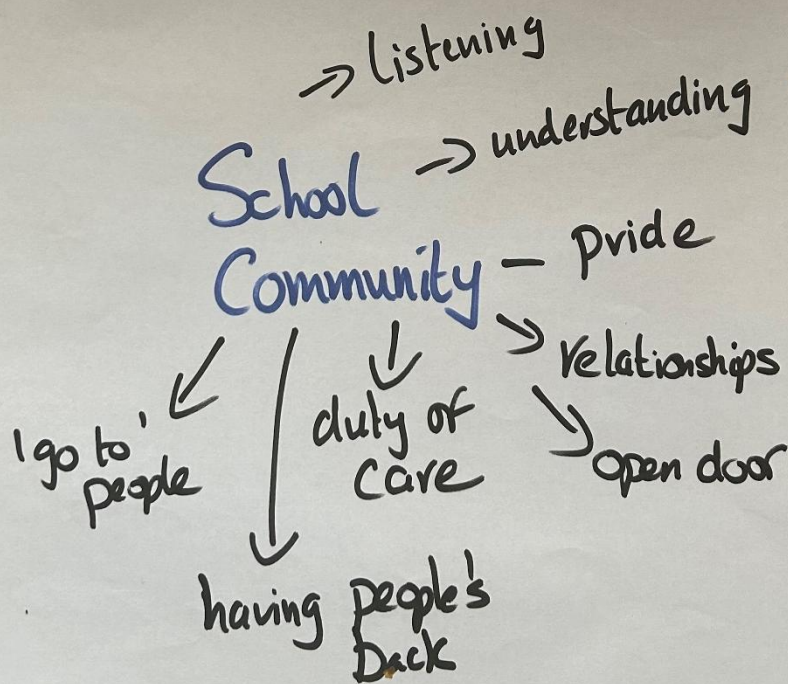 listening
understanding
School
Community
pride
relationships
open door
duty of
care
'go to'
people
having people's
back